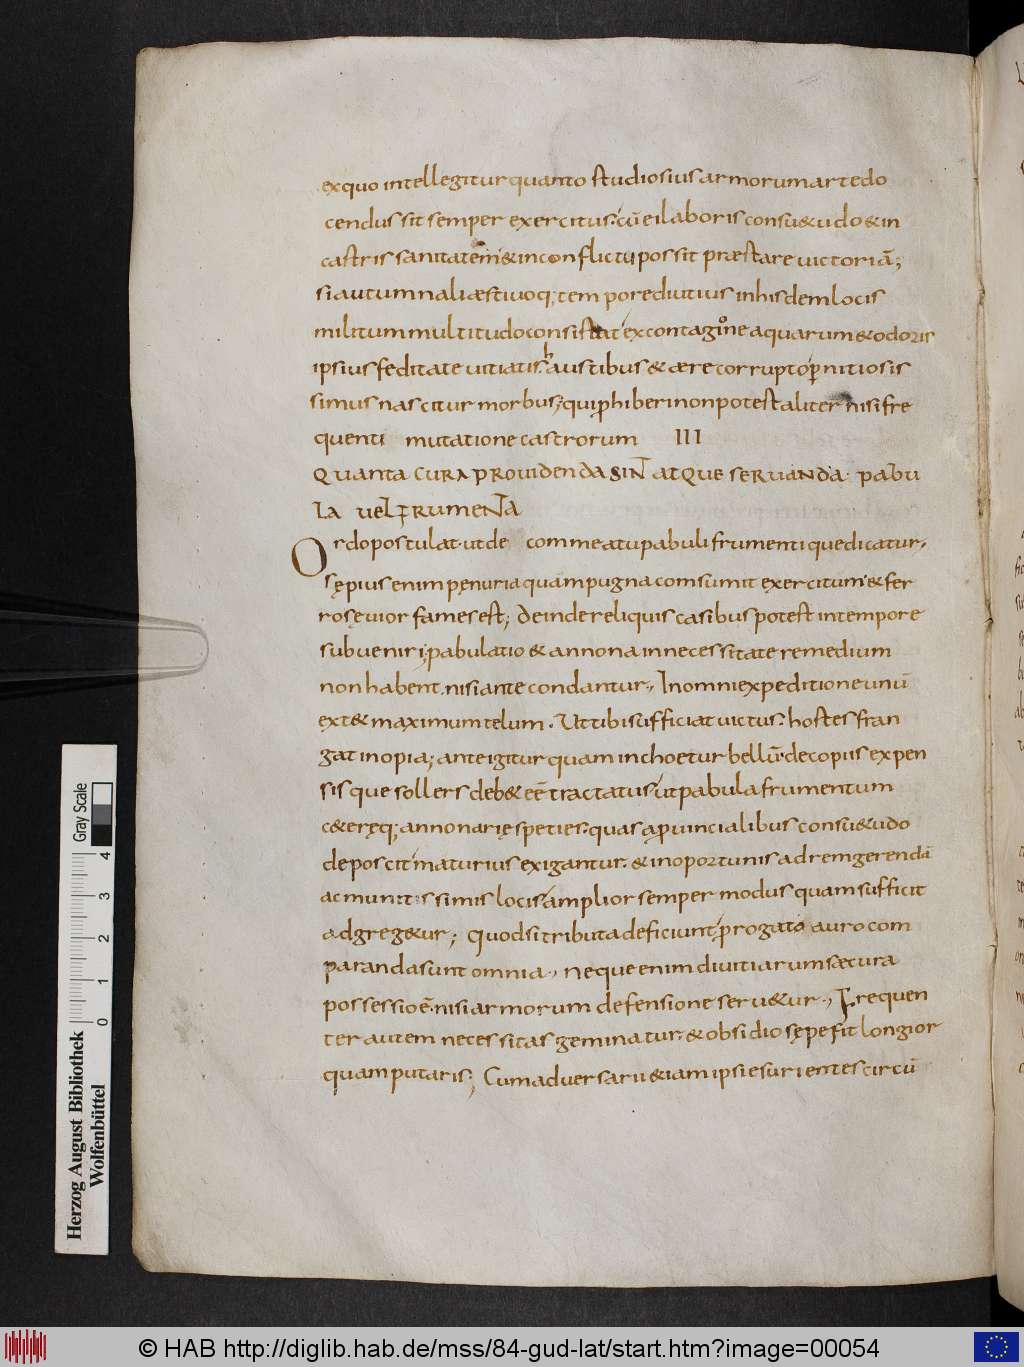 exquo intellegitur quanto studiosius armorum arte do
cendus sit semper exercitus. cū ei laboris consu&udo & in
castris sanitatem & in conflictu possit præstare uictoriā;
si autumnali æstiuoq; tempore diutius in hisdem locis
militum multitudo consistat ex contagione aquarum & odoris
ipsius feditate uitiatis haustibus & aere corrupto p̱nitiosis
simus nascitur morbus; qui phiberi non potest aliter nisi fre
quenti mutatione castrorum III
QUANTA CURA PROUIDENDA SINT ATQUE SERUANDA PABU
LA UEL FRUMENTA
Ordo postulat. ut de commeatu pabuli frumentique dicatur.,
sępius enim pęnuria quam pugna comsumit exercitum & fer
ro sęuior fames est; Deinde reliquis casibus potest in tempore
subueniri; pabulatio & annona in necessitate remedium
non habent. nisi ante condantur., In omni expeditione unū
ext & maximum telum. Ut tibi sufficiat uictus. hostes fran
gat inopia; ante igitur quam inchoetur bellū. de copiis expen
sisque sollers deb& eē tractatus ut pabula frumentum
c&eręq; annonarię speties. quas a puincialibus consu&udo
deposcit maturius exigantur. & in oportunis ad rem gerendā
ac munitissimis locis amplior semper modus quam sufficit
adgreg&ur; Quod si tributa deficiunt progato auro com
paranda sunt omnia., neque enim diuitiarum sæcura
possessio ē. nisi armorum defensione seru&ur., Frequen
ter autem necessitas geminatur. & obsidio sępe fit longior
quam putaris; Cum aduersarii &iam ipsi esurientes circū
Herzog August Bibliothek
Wolfenbüttel
0 1 2 3 4
Gray Scale
© HAB http://diglib.hab.de/mss/84-gud-lat/start.htm?image=00054